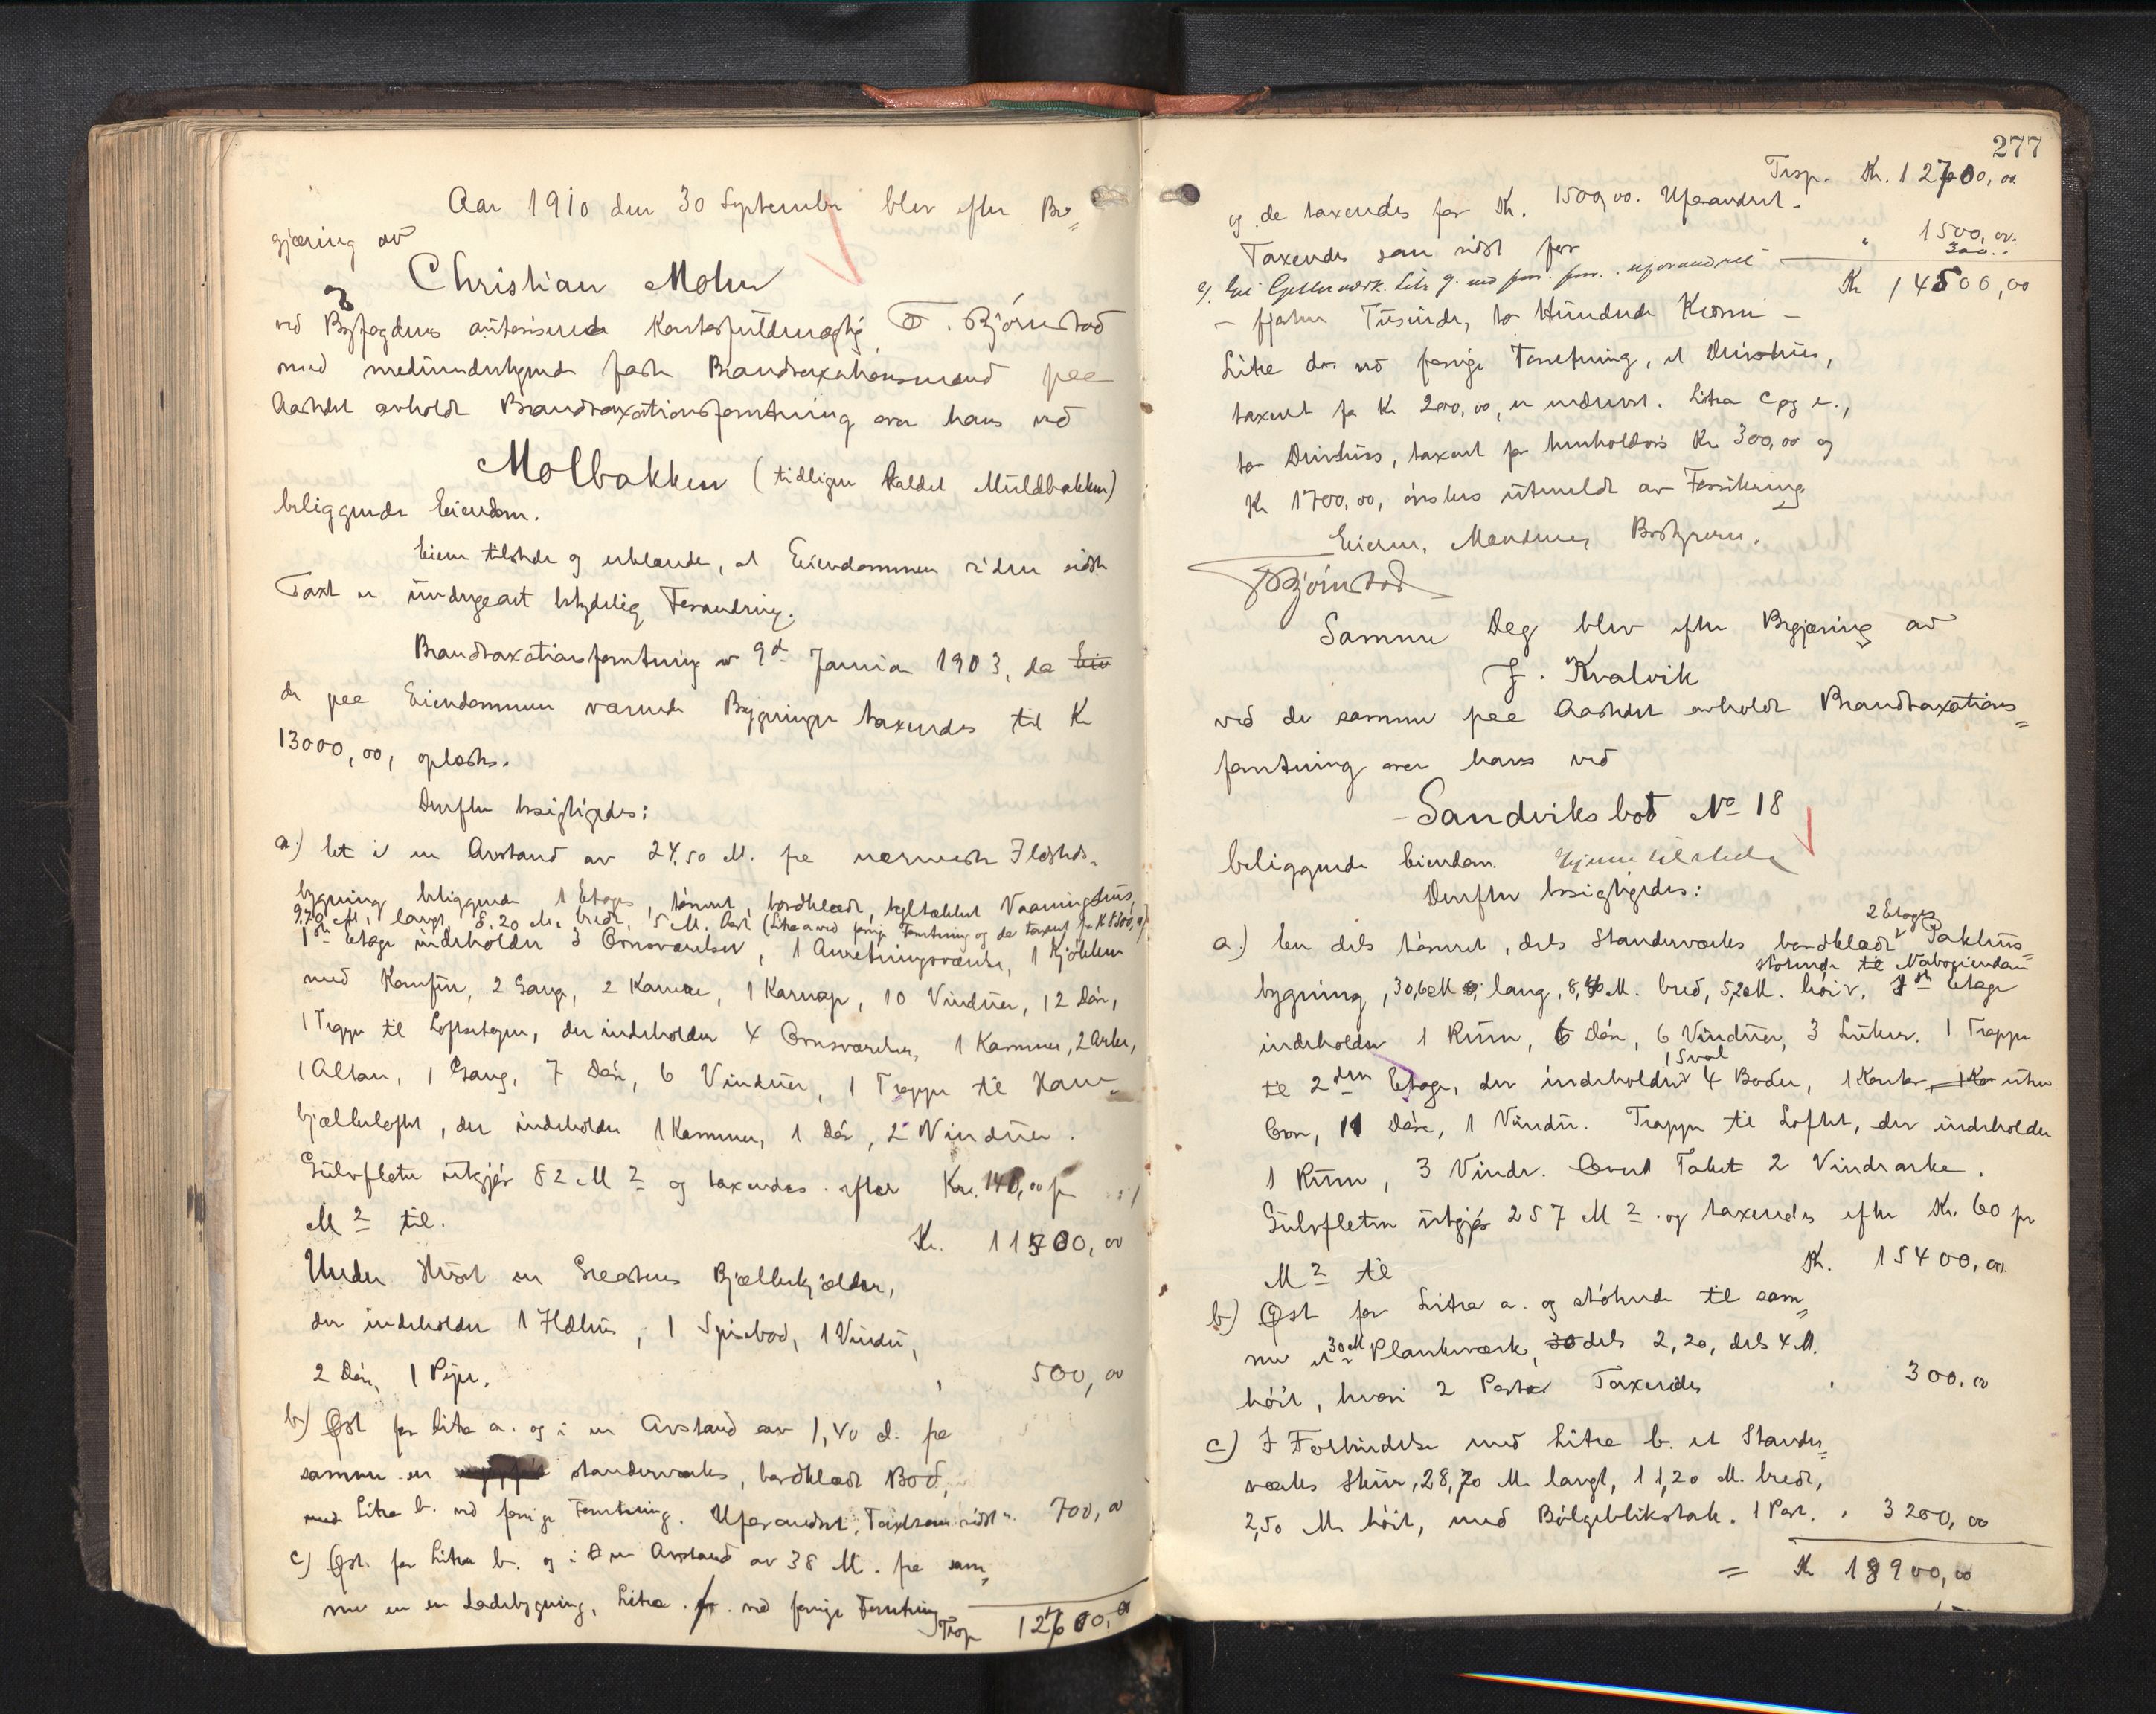 Aar 1910 den 30 September blev efter Be=
gjæring av
Christian Mohr
ved Byfogdens autoriserede Kontorfuldmægtig F. Bjørnstad
med medundertegnede faste Brandtaxationsmænd paa
Aastedet avholdt Brandtaxationsforretning over hans ved
Molbakken (tidligere kaldet Muldbakken)
beliggende Eiendom.
Eieren tilstede og erklærede, at Eiendommen siden sidste
Taxt er undergaat betydelig Forandring.
Brandtaxationsforretning av 9de Januar 1903, da
de paa Eiendommen værende Bygninger taxeredes til Kr
13000,00, oplæstes.
Derefter besigtigedes:
a.) Et i en Avstand av 24,50 M. fra nærmeste Ildsteds-
bygning beliggende 1 Etages, tømret, bordklædt, tegltækket Vaaningshus,
9,70 M. langt, 8,20 M. bredt, 5 M. høit (Litra a ved forrige Forretning og da taxeret for Kr 8500,00)
1ste Etage indeholder 3 Ovnsværelser, 1 Anretningsværelse, 1 Kjøkken
med Komfur, 2 Gange, 2 Kamre, 1 Karnap, 10 Vinduer, 12 Døre,
1 Trappe til Loftsetagen, der indeholder 4 Ovnsværelser, 1 Kammer, 2 Arker,
1 Altan, 1 Gang, 7 Døre, 6 Vinduer, 1 Trappe til Hane-
bjælkeloftet, der indeholder 1 Kammer, 1 Dør, 2 Vinduer.
Gulvfladen utgjør 82 M2 og taxeredes efter Kr. 140,00 pr
M2 til.
Kr. 11500,00
Under Huset en Graastens Bjælkekjælder,
der indeholder 1 Ildhus, 1 Spisebod, 1 Vindu,
2 Døre, 1 Pipe. " 500,00
b) Øst for Litra a. og i en Avstand av 1,40 M. fra
samme en standerværks, bordklædt Bod,
med Litra b. ved forrige Forretning. Uforandret. Taxt som sidst " 700,00
c) Øst for Litra b. og i en Avstand av 38 M. fra sam=
me en en Ladebygning, Litra f. ved forrige Forretning
Trsp 12700,00
277
Trsp. Kr. 12700,00
og da taxeredes for Kr. 1500,00. Uforandret.
Taxeredes som sidst for " 1500,00.
300..
Kr 14500,00
– fjorten Tusinde, to Hundrede Kroner –
Litra d. ved forrige Forretning, et Drivhus,
taxeret for Kr 200,00, er nedrevet. Litra c og e.,
to Drivhus, taxert for henholdsvis Kr 300,00 og
Kr 1700,00, ønskes utmeldt av Forsikring
Eieren, Mændenes Bestyreren.
FBjørnstad
Samme Dag blev efter Begjæring av
J. Kvalvik
ved de samme paa Aastedet avholdt Brandtaxations=
forretning over hans ved
Sandviksbod No 18
beliggende Eiendom. Eieren tilstede
Derefter besigtigedes:
a.) En dels tømret, dels Standerværks bordklædt 2 Etages Pakhus=
støtende til Naboeiendom
bygning, 30,60 M. lang, 8,40 M. bred, 5,20 M. høi. 1ste Etage
indeholder 1 Rum, 6 Døre, 6 Vinduer, 3 Luker. 1 Trappe
1 Sval
til 2den Etage, der indeholder 4 Boder, 1 Kontor uten
Ovn, 11 Døre, 1 Vindu. Trappe til Loftet, der indeholder
1 Rum, 3 Vindr. Ovenpaa Taket 2 Vindearke.
Gulvfladen utgjør 257 M2. og taxeredes efter Kr. 60 pr
M2 til Kr. 15400,00.
b) Øst for Litra a. og støtende til sam=
me et 30 M Plankeværk, dels 2,20, dels 4 M.
høit, hvori 2 Porter Taxeredes " 300,00
c) I Forbindelse med Litra b. et Stander=
værks Skur, 28,70 M. langt, 11,20 M. bredt,
2,50 M. høit, med Bølgeblikstak. 1 Port. " 3200,00
= Kr 18900,00